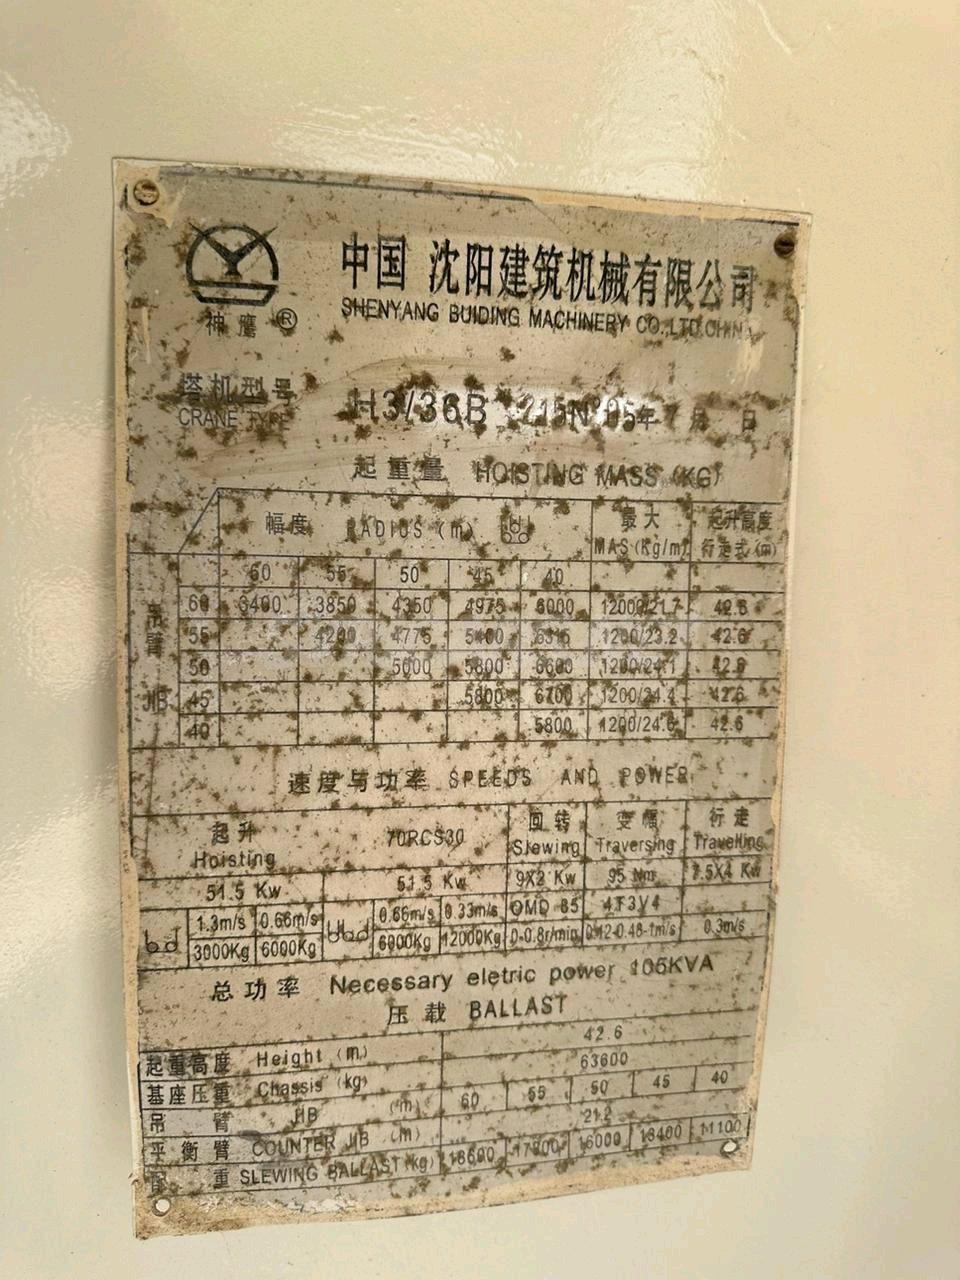 中国 沈阳建筑机械有限公司
SHENYANG BUIDING MACHINERY CO.,LTD.CHINA
神鹰 ®
塔机型号
CRANE TYPE H3/36B 215N° 05年 7月 日
起重量 HOISTING MASS (KG)
幅度 RADIUS (m) 最大 起升高度
MAS(Kg/m) 行走式(m)
60 55 50 45 40
吊臂 JIB
60 3400 3850 4350 4975 6000 12000/21.7 42.6
55 4200 4775 5400 1200/23.2 42.6
50 5000 5800 6600 1200/24.1 42.6
45 5800 6700 1200/24.4 42.6
40 5800 42.6
速度与功率 SPEEDS AND POWER
起升 70RCS30 回转 变幅 行走
Hoisting Slewing Traversing Travelling
51.5 Kw 51.5 Kw 9X2 Kw 95 Nm 7.5X4 Kw
1.3m/s 0.66m/s 0.66m/s 0.33m/s OMD 85 4T3V4
3000Kg 6000Kg 6000Kg 12000Kg 0-0.8r/min 0.3m/s
总功率 Necessary eletric power 105KVA
压载 BALLAST
起重高度 Height (m) 42.6
基座压重 Chassis (kg) 63600
吊臂 JIB (m) 60 55 50 45 40
平衡臂 COUNTER JIB (m) 21.2
配重 SLEWING BALLAST(kg) 16000 11100